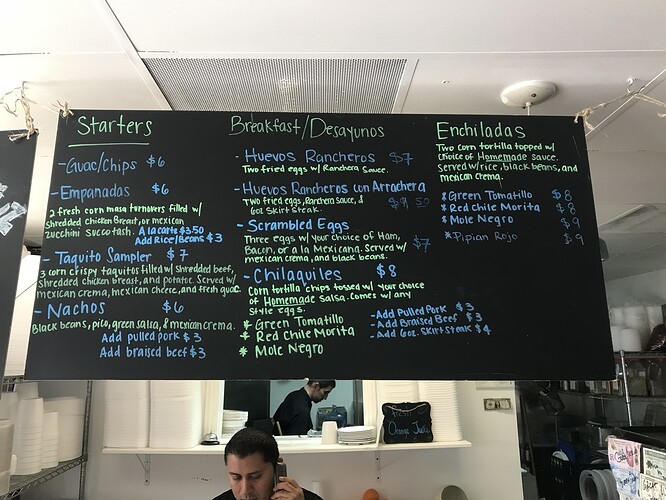 Starters
-Guac/Chips $6
-Empanadas $6
2 fresh corn masa turnovers filled w/
Shredded Chicken Breast, or mexican
zucchini succotash. A la carte $3.50
Add Rice/Beans $3
-Taquito Sampler $7
3 corn crispy taquitos filled w/ Shredded beef,
Shredded chicken breast, and potatoe. Served w/
mexican crema, mexican cheese, and fresh guac.
-Nachos $6
Black beans, pico, green salsa, & mexican crema.
Add pulled pork $3
Add braised beef $3
Breakfast/Desayunos
-Huevos Rancheros $7
Two fried eggs w/ Ranchera Sauce.
-Huevos Rancheros con Arrachera
Two fried eggs, Ranchera Sauce, &
6oz Skirt Steak. $9.50
-Scrambled Eggs
Three eggs w/ your choice of Ham,
Bacon, or a la Mexicana. Served w/
mexican crema, and black beans. $7
-Chilaquiles $8
Corn tortilla chips tossed w/ your choice
of Homemade Salsa. Comes w/ any
style eggs.
* Green Tomatillo
* Red Chile Morita
* Mole Negro
-Add Pulled Pork $3
-Add Braised Beef $3
-Add 6oz. Skirt Steak $4
Enchiladas
Two corn tortilla topped w/
choice of Homemade sauce.
Served w/ rice, black beans, and
mexican crema.
*Green Tomatillo $8
*Red Chile Morita $8
*Mole Negro $9
*Pipian Rojo $9
Fresh
Orange Juice